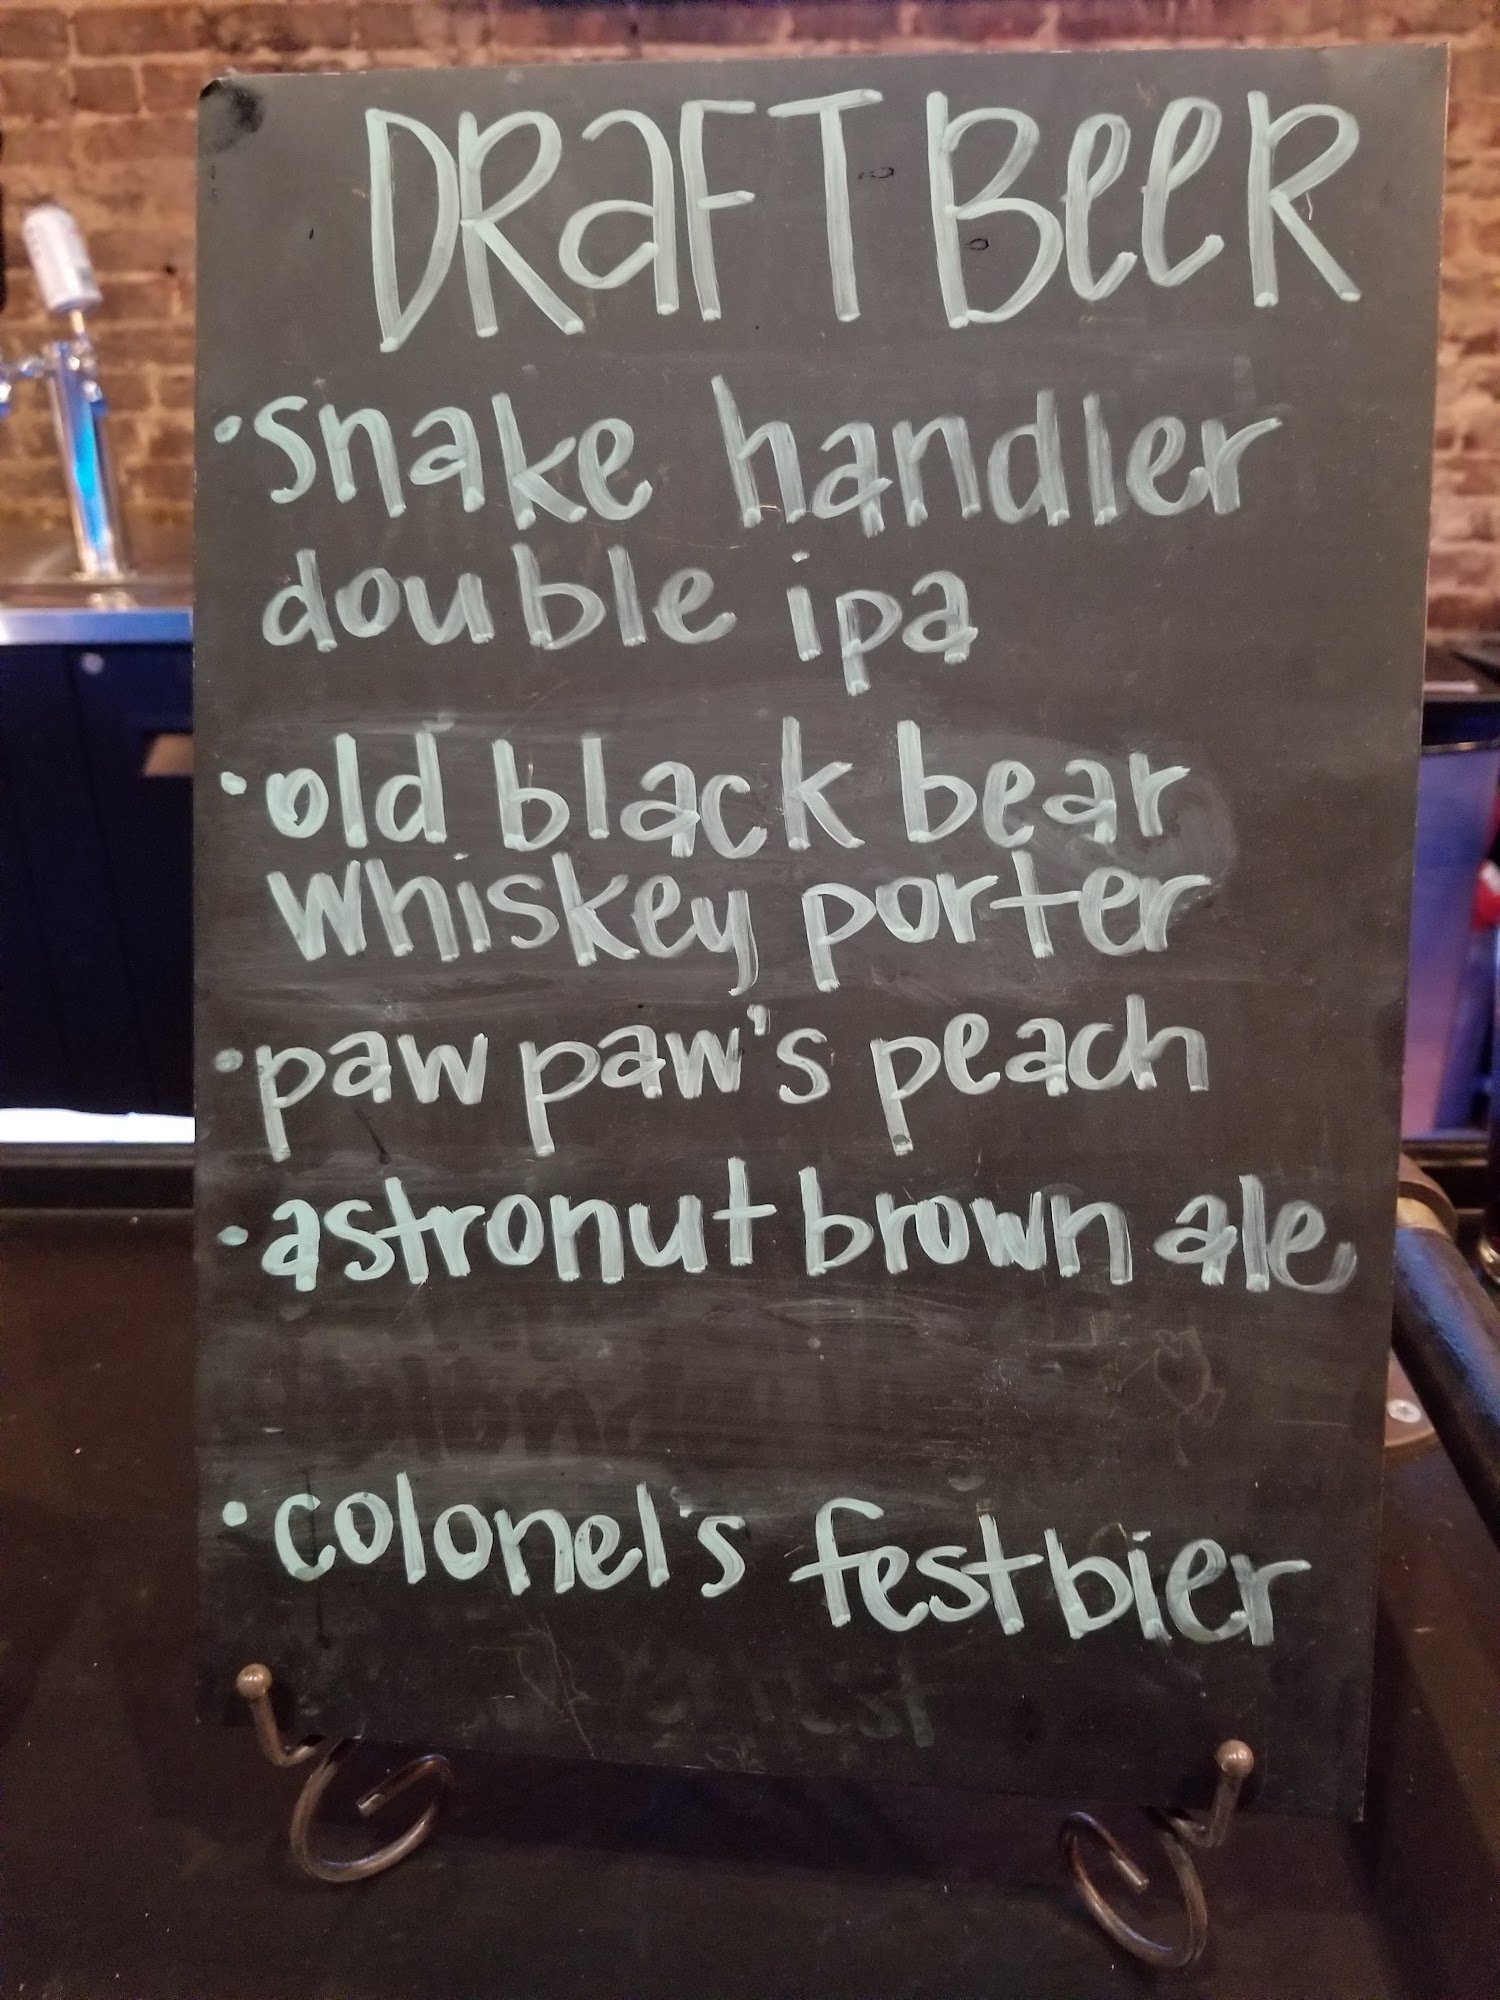 DRaFT BeeR
• snake handler
double ipa
• old black bear
whiskey porter
• paw paw's peach
• astronut brown ale
• colonel's festbier